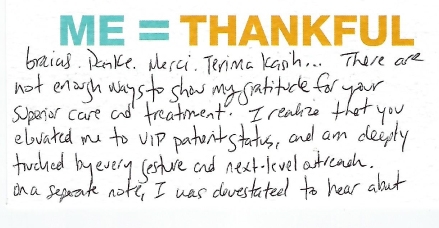 ME = THANKFUL
Graias. Danke. Merci. Terima Kasih... There are
not enough ways to show my gratitude for your
superior care and treatment. I realize that you
elevated me to VIP patient status, and am deeply
touched by every gesture and next-level outreach.
On a separate note, I was devestated to hear about